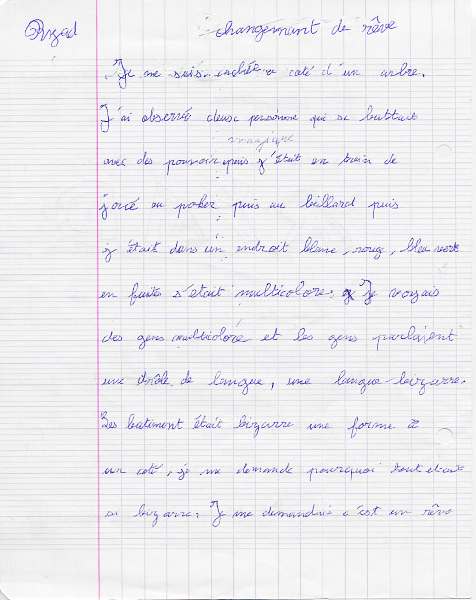 Azad changement de rêve
Je me suis cachée a coté d'un arbre.
J'ai observé deux personne qui se battait
magique
avec des pouvoir puis j'était en train de
joué au poker puis au billard puis
j'était dans un endroit blanc, rouge, bleu vert
en faites s'était multicolore. Je voyais
des gens multicolore et les gens parlaient
une drôle de langue, une langue bizarre.
Les batiment était bizarre une forme a
un coté, je me demande pourquoi tout était
si bizarre. Je me demandais c'est un rêve